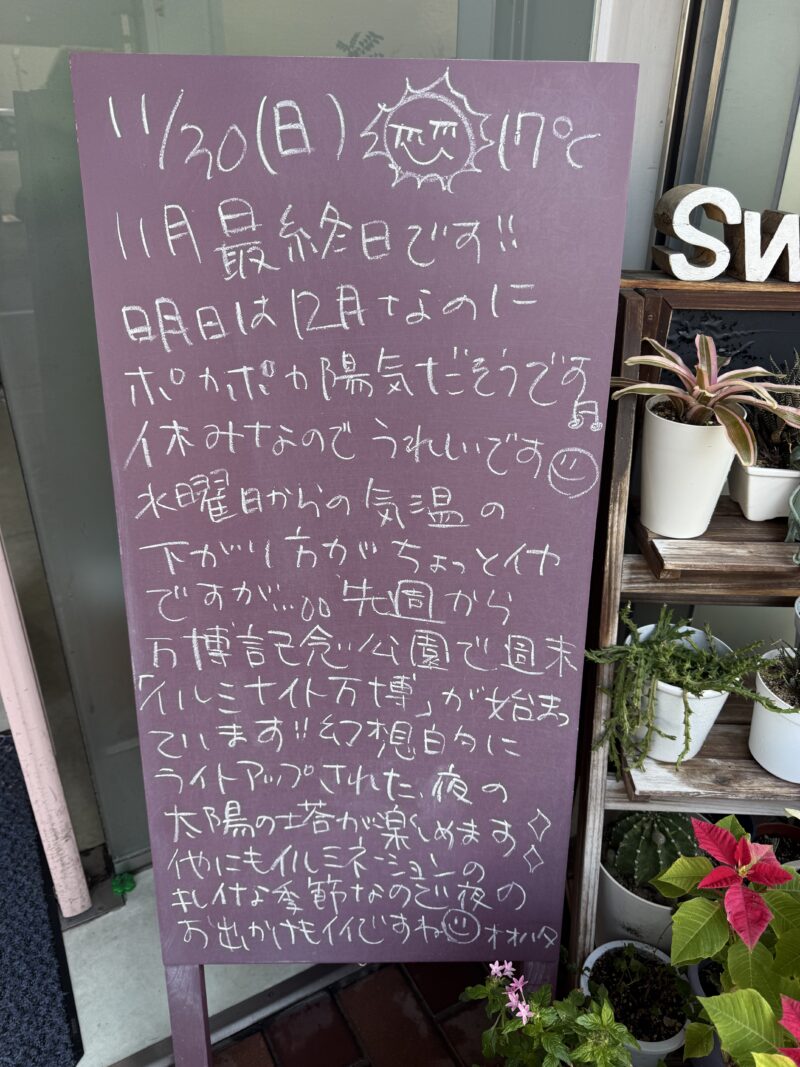 11/30(日) 17℃
11月最終日です!!
明日は12月なのに
ポカポカ陽気だそうです
休みなのでうれしいです
水曜日からの気温の
下がり方がちょっとイヤ
ですが...。。先週から
万博記念公園で週末
「イルミナイト万博」が始まっ
ています!!幻想的に
ライトアップされた夜の
太陽の塔が楽しめます
他にもイルミネーションの
キレイな季節なので夜の
お出かけもイイですね オオハタ
Sw